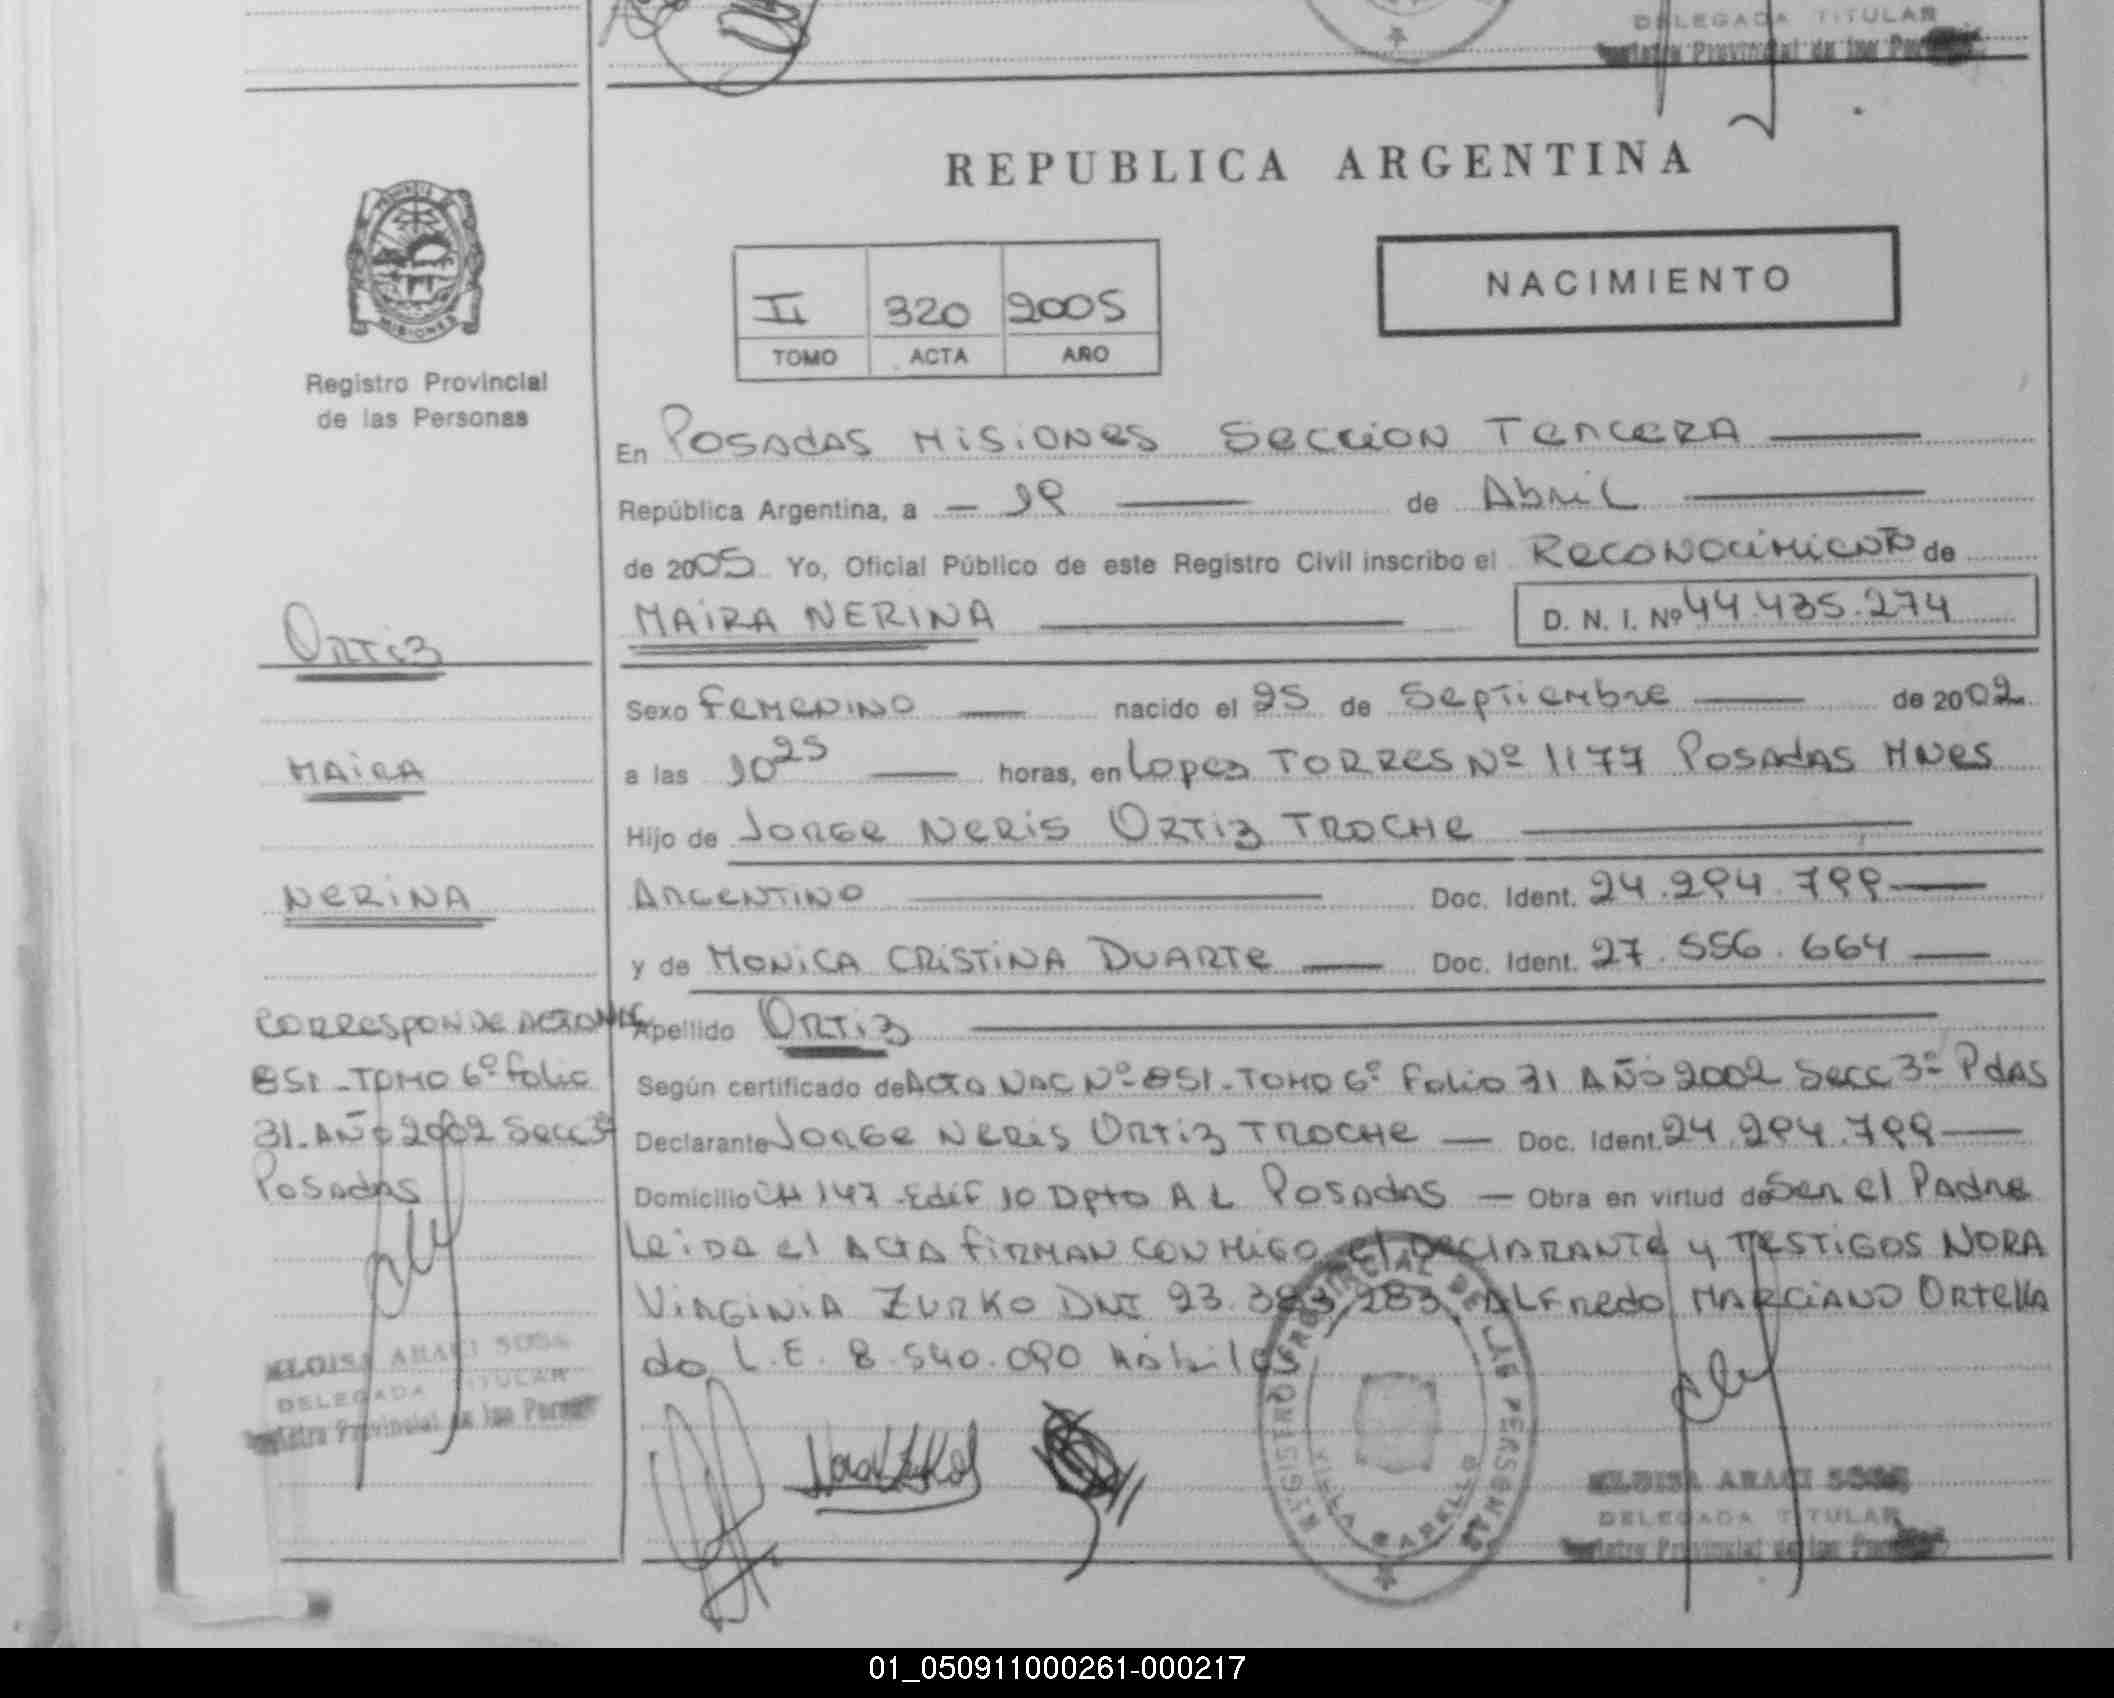 DELEGADA TITULAR
Provincial de las
REPUBLICA ARGENTINA
PROVINCIA DE
MISIONES
NACIMIENTO
II 320 2005
TOMO ACTA AÑO
Registro Provincial
de las Personas
En POSADAS MISIONES SECCION TERCERA
República Argentina, a - 19 de Abril
de 2005 Yo, Oficial Público de este Registro Civil inscribo el RECONOCIMIENTO de
MAIRA NERINA D. N. I. Nº 44.435.274
ORTIZ
Sexo FEMENINO nacido el 25 de Septiembre de 2002
MAIRA
a las 10 25 horas, en Lopez TORRES Nº 1177 POSADAS MNES
Hijo de JORGE NERIS ORTIZ TROCHE
NERINA
ARGENTINO Doc. Ident. 24.294.799
y de MONICA CRISTINA DUARTE Doc. Ident. 27.556.664
Apellido ORTIZ
CORRESPONDE ACTA NAC
851 - TOMO 6º folio
31. AÑO 2002 Secc 3ª
POSADAS
Según certificado de ACTA NAC Nº 851 - TOMO 6º Folio 31 AÑO 2002 Secc 3ª Pdas
Declarante JORGE NERIS ORTIZ TROCHE Doc. Ident. 24.294.799
Domicilio CH 147 Edif 10 Dpto A L POSADAS Obra en virtud de Ser el Padre
Leida el ACTA FIRMAN CONMIGO el DECLARANTE y TESTIGOS NORA
VIRGINIA ZURKO DNI 23.383.283 ALFredo MARCIANO ORTella
do L.E. 8.540.090 hábiles
ELOISA ARACI SOSA
DELEGADA TITULAR
Provincial de las
REGISTRO PROVINCIAL DE LAS PERSONAS
VILLA
ELOISA ARACI SOSA
DELEGADA TITULAR
Provincial de las
01_050911000261-000217